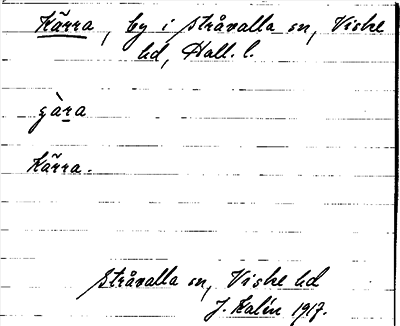 Kärra, by i Stråvalla sn, Viske
hd, Hall. l.
gàra
Kärra.
Stråvalla sn, Viske hd
J. Kalén 1917.